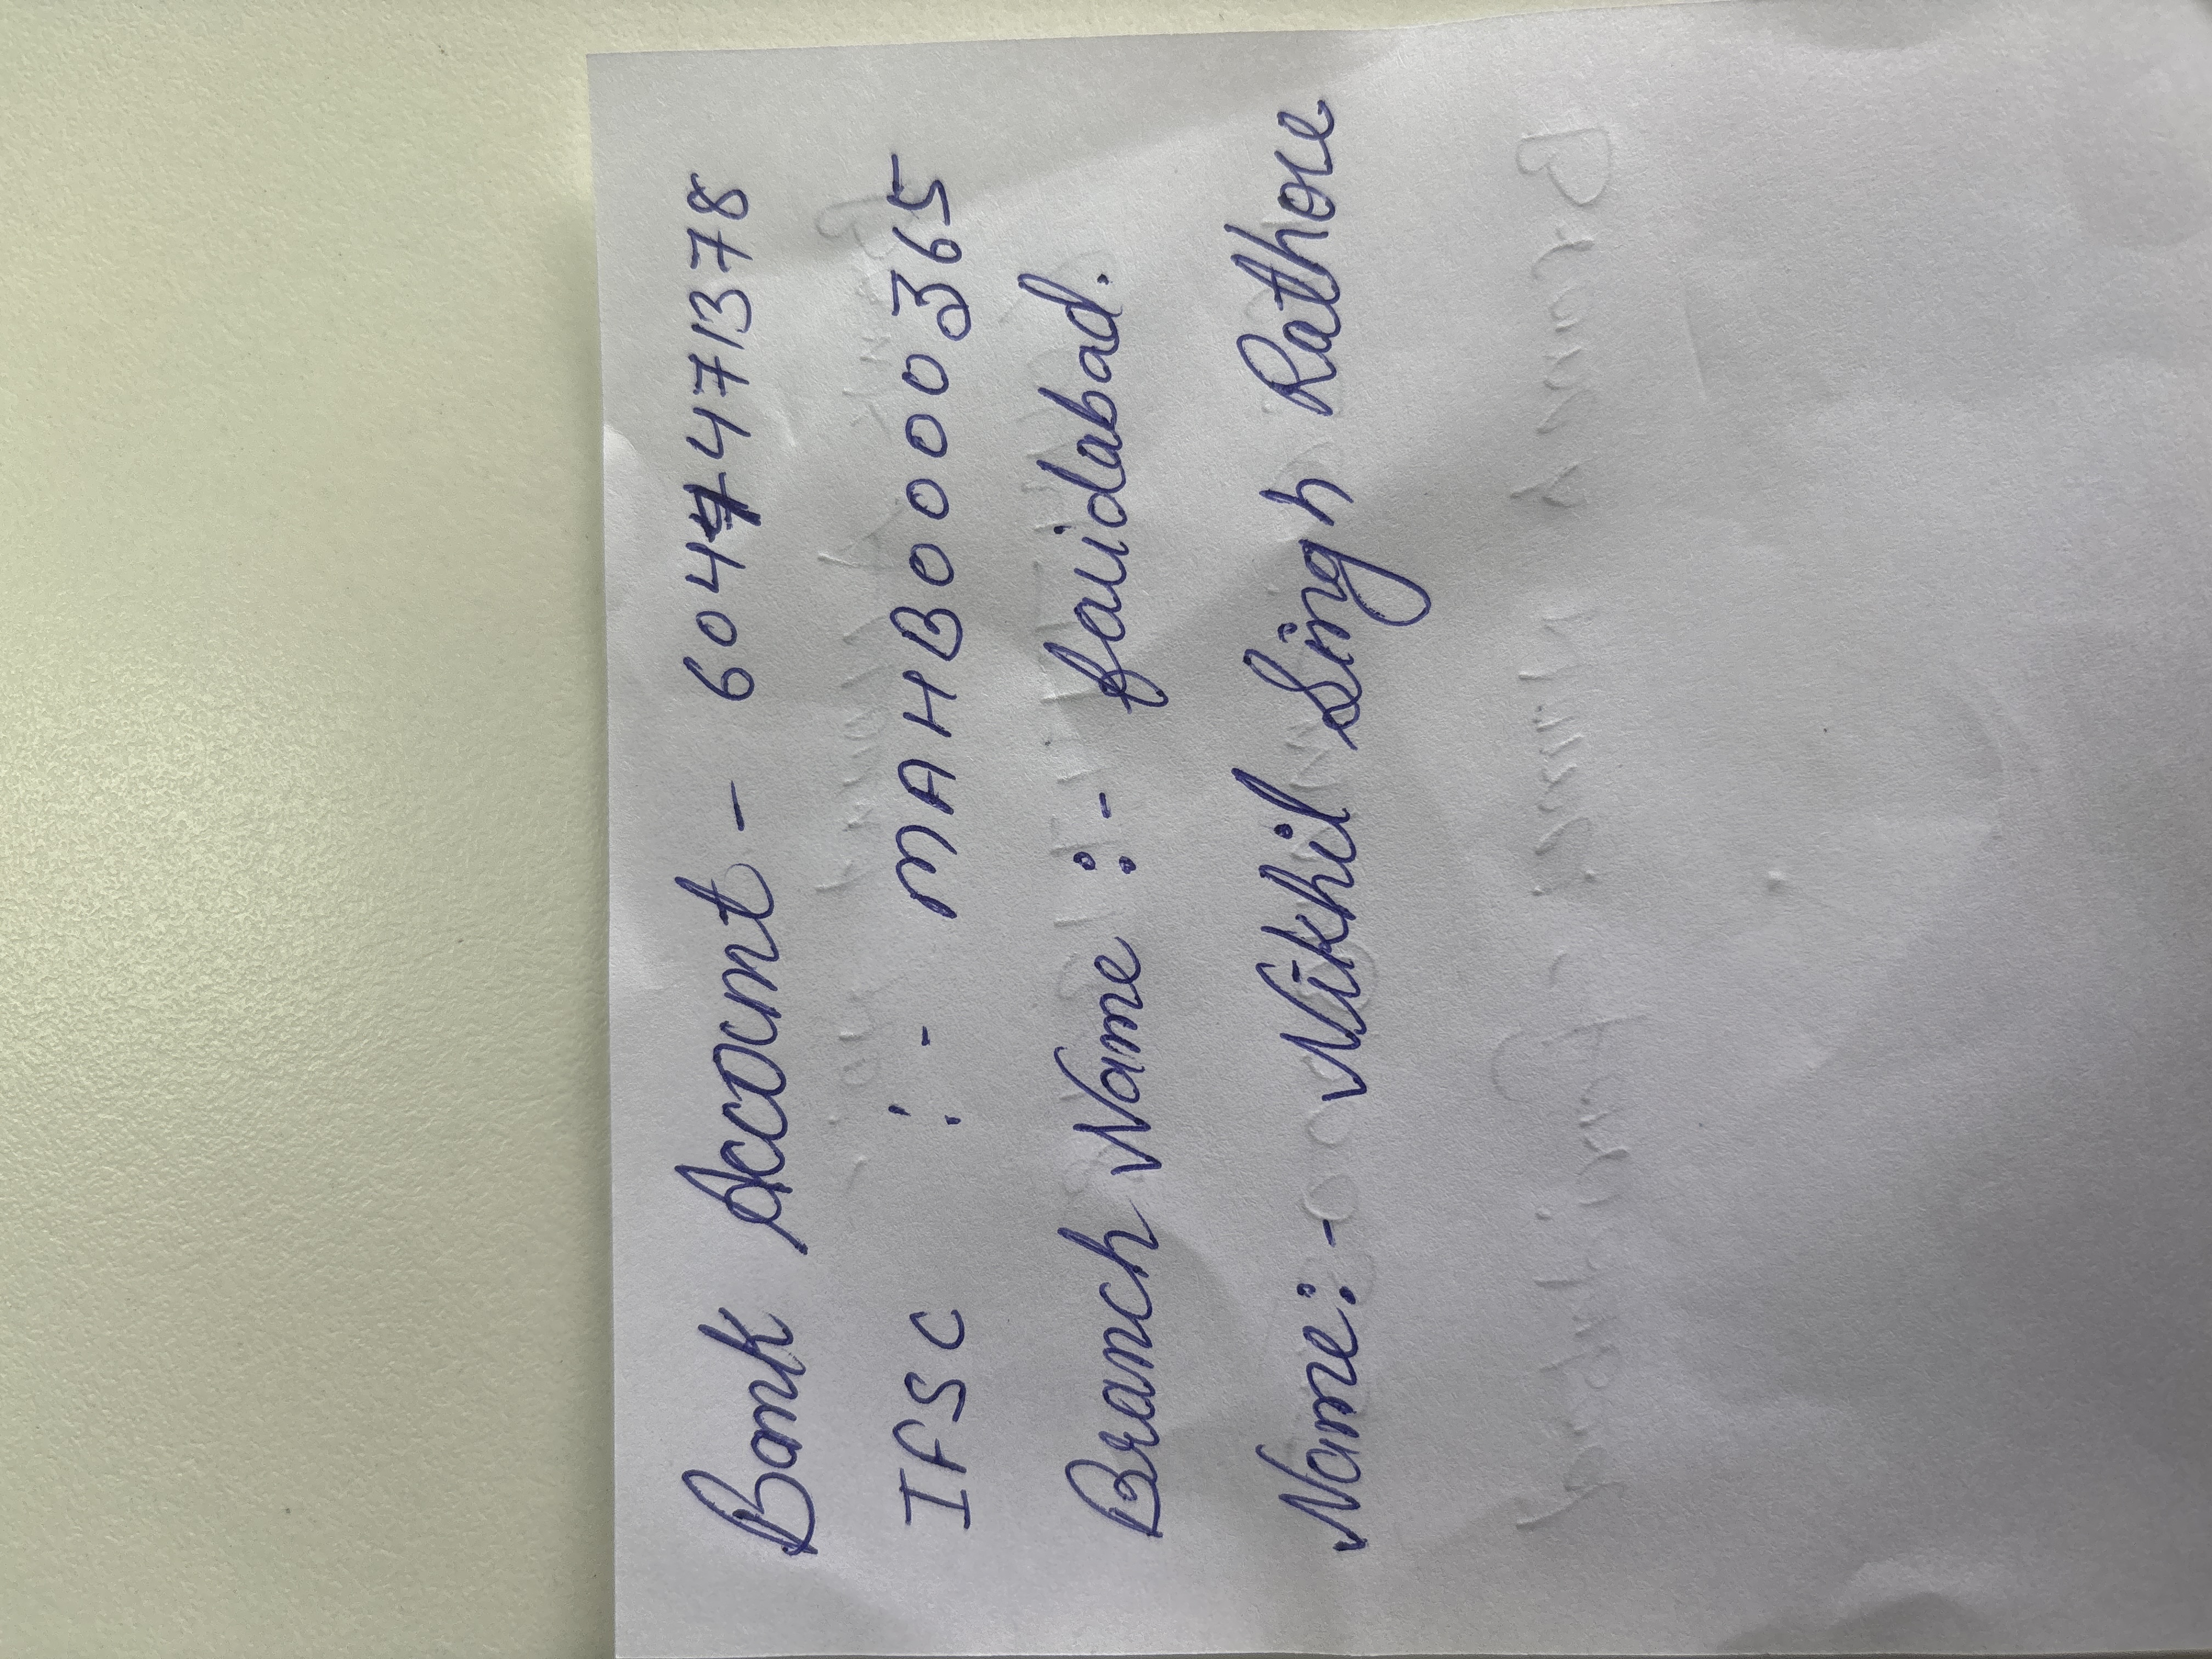 Bank Account -
IFSC :- MAHB0000365
Branch Name :- faridabad.
Name :- Nikhil Singh Rathore